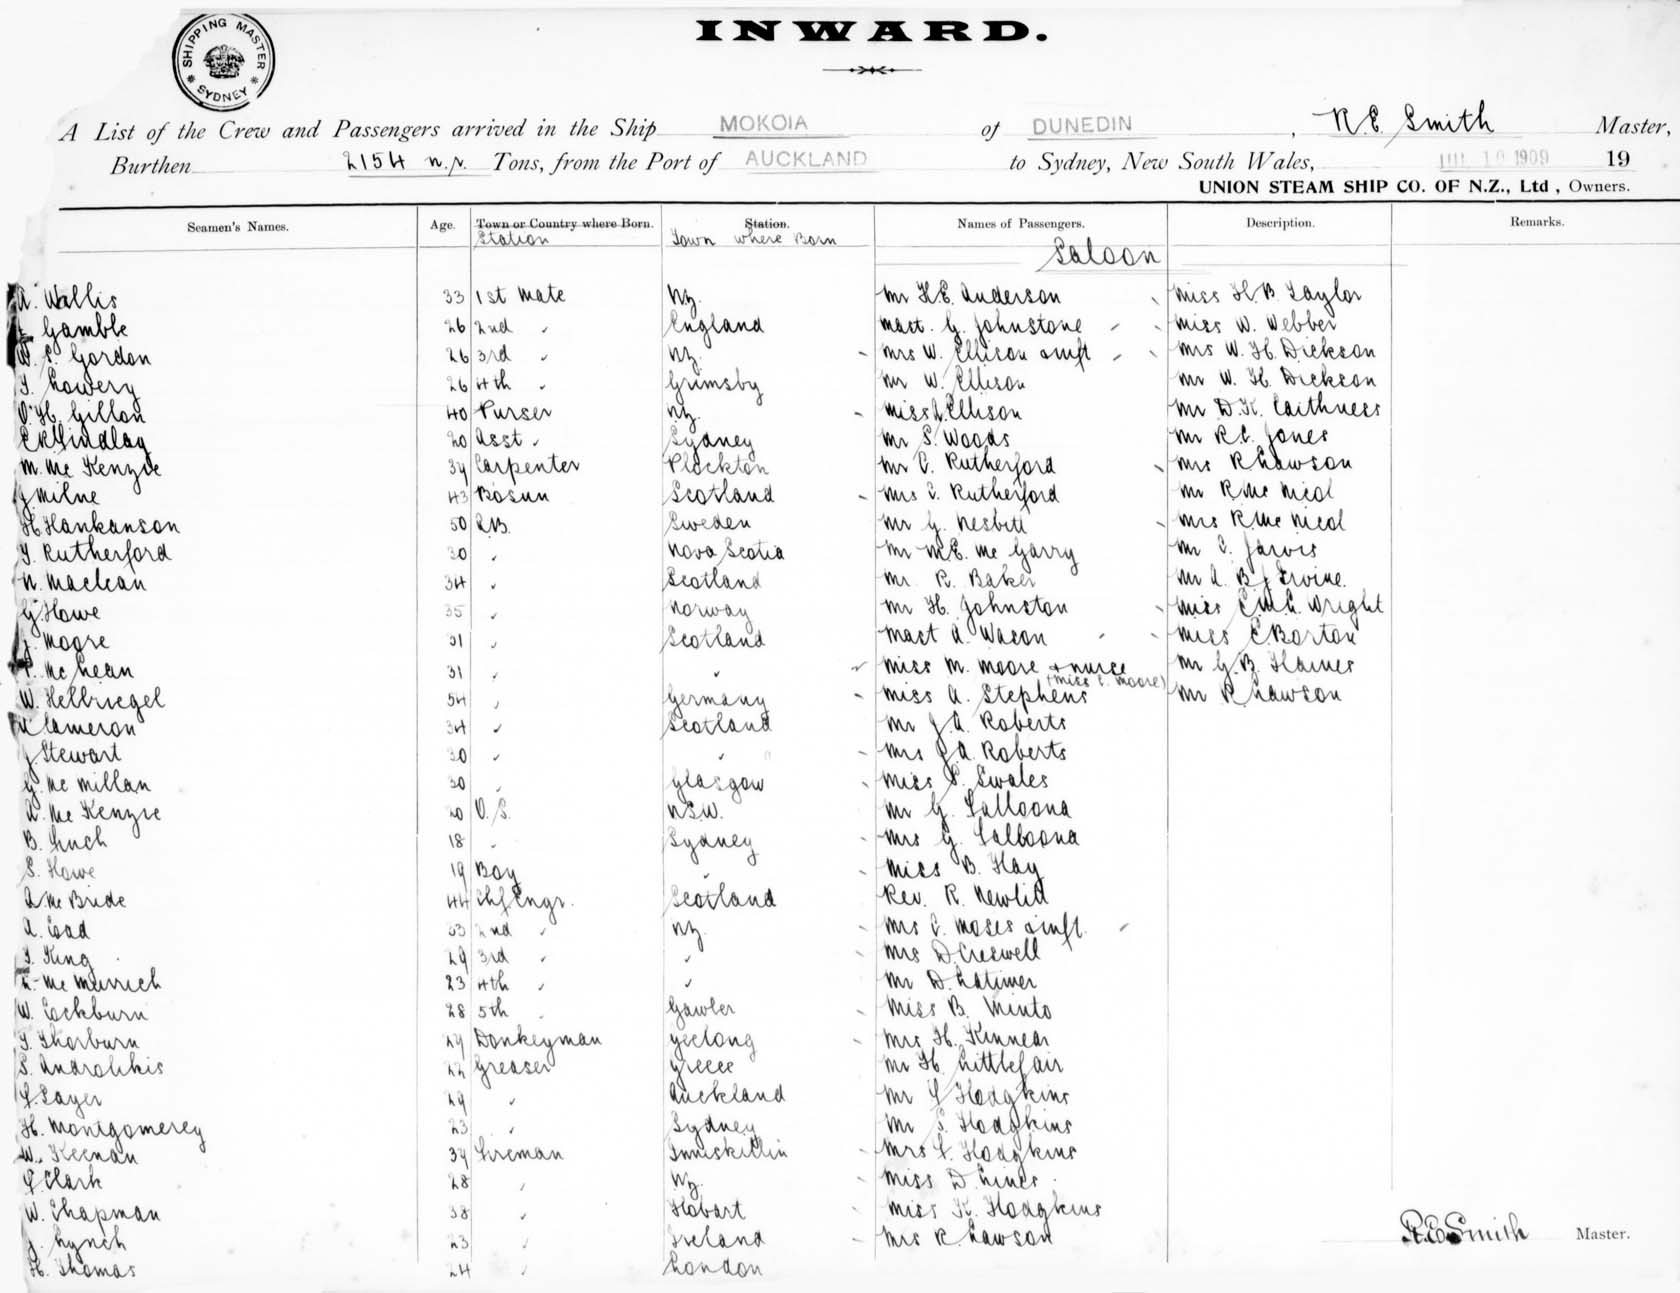 SHIPPING MASTER SYDNEY
INWARD.
A List of the Crew and Passengers arrived in the Ship MOKOIA of DUNEDIN, R.E. Smith Master,
Burthen 2154 n.r. Tons, from the Port of AUCKLAND to Sydney, New South Wales, JUL 10 1909 19
UNION STEAM SHIP CO. OF N.Z., Ltd, Owners.
Seamen's Names. Age. Town or Country where Born. Station. Names of Passengers. Description. Remarks.
Station Town where Born
Saloon
A. Wallis 33 1st Mate N.Z. Mr H.E. Anderson Miss H.B. Taylor
Gamble 26 2nd " England Mast. G. Johnstone Miss W. Webber
W. S. Gordon 26 3rd " N.Z. Mrs W. Ellison & inft Mrs W. H. Dickson
T. Lowery 26 4th " Grimsby Mr W. Ellison Mr W. H. Dickson
O. H. Gillon 40 Purser N.Z. Miss Ellison Mr D. K. Caithness
Findlay 20 Asst " Sydney Mr S. Woods Mr R.C. Jones
M. McKenzie 39 Carpenter Plockton Mr C. Rutherford Mrs R Lawson
J Milne 43 Bosun Scotland Mrs C. Rutherford Mr R McNicol
H Hankanson 50 A.B. Sweden Mr G. Nesbitt Mrs R McNicol
T. Rutherford 30 " Nova Scotia Mr M.E. McGarry Mr C. Jarvis
N. Maclean 34 " Scotland Mr. R. Baker Mr A. B. J Irvine.
G. Howe 35 " Norway Mr H. Johnston Miss E.M.C. Wright
J. Moore 31 " Scotland Mast A. Wason Miss E Barton
McLean 31 " " Miss M. Moore & nurse Mr G. B. Haines
(Miss C. Moore)
W. Hellriegel 54 " Germany Miss A. Stephens Mr R Lawson
Cameron 34 " Scotland Mr J. A. Roberts
J Stewart 30 " " Mrs J. A. Roberts
G. McMillan 30 " Glasgow Miss S. Swales
A. McKenzie 20 O.S. N.S.W. Mr G. Salloona
B. Luch 18 " Sydney Mrs G. Salloona
S. Howe 19 Boy " Miss B. Hay
A McBride 44 Chf Engr. Scotland Rev. R. Newlitt
A. Coad 33 2nd " N.Z. Mrs C. Moses & inft.
T. King 29 3rd " " Mrs D. Creswell
McMurrich 23 4th " " Mr D. Latimer
W. Cockburn 28 5th " Gawler Miss B. Minto
T. Thorburn 29 Donkeyman Geelong Mrs H. Kinnear
S. Androlikis 22 Greaser Greece Mr H. Littlefair
Sayer 29 " Auckland Mr Hodgkins
H. Montgomerey 23 " Sydney Mr S. Hodgkins
W. Keenan 39 Fireman Inniskillin Mrs Hodgkins
Clark 28 " N.Z. Miss D. Lines
W. Chapman 38 " Hobart Miss K. Hodgkins
J. Lynch 23 " Ireland Mrs R. Lawson
H. Thomas 24 " London
R.E. Smith Master.